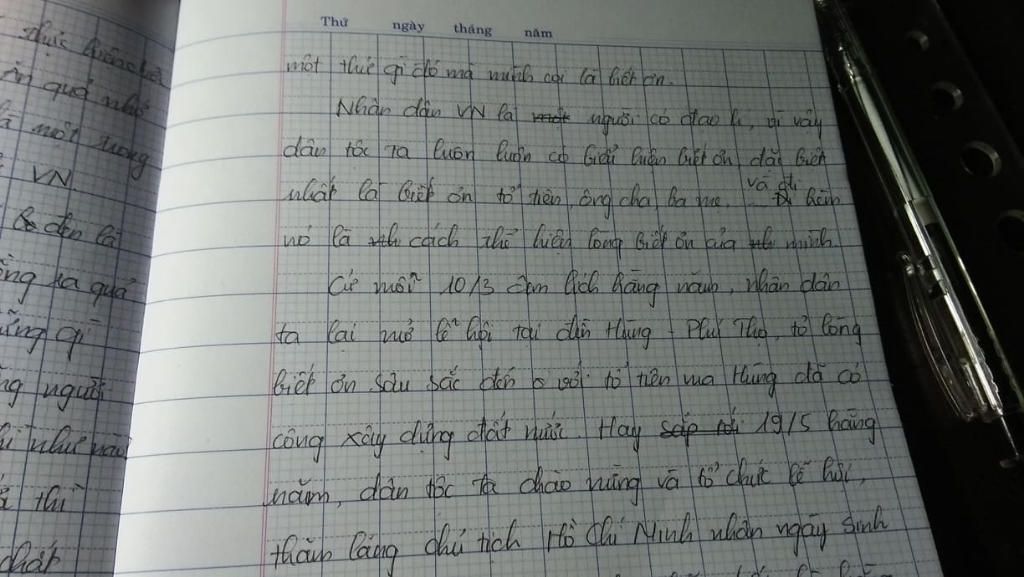 Thứ ngày tháng năm
một thứ gì đó mà mình gọi là biết ơn.
Nhân dân VN là người có đạo lí, vì vậy
dân tộc ta luôn luôn có biết ơn đặc biệt
nhất là biết ơn tổ tiên, ông cha ba mẹ. và đi kèm
nó là cách thể hiện lòng biết ơn của mình
Cứ mỗi 10/3 âm lịch hằng năm, nhân dân
ta lại mở lễ hội tại đền Hùng - Phú Thọ, tỏ lòng
biết ơn sâu sắc đến với tổ tiên vua Hùng đã có
công xây dựng đất nước. Hay 19/5 hằng
năm, dân tộc ta chào mừng và tổ chức lễ hội,
thăm lăng chủ tịch Hồ Chí Minh nhân ngày sinh
quả nhỏ
là một trong
VN
đến là
ra quả
gì
người
như nào
thì